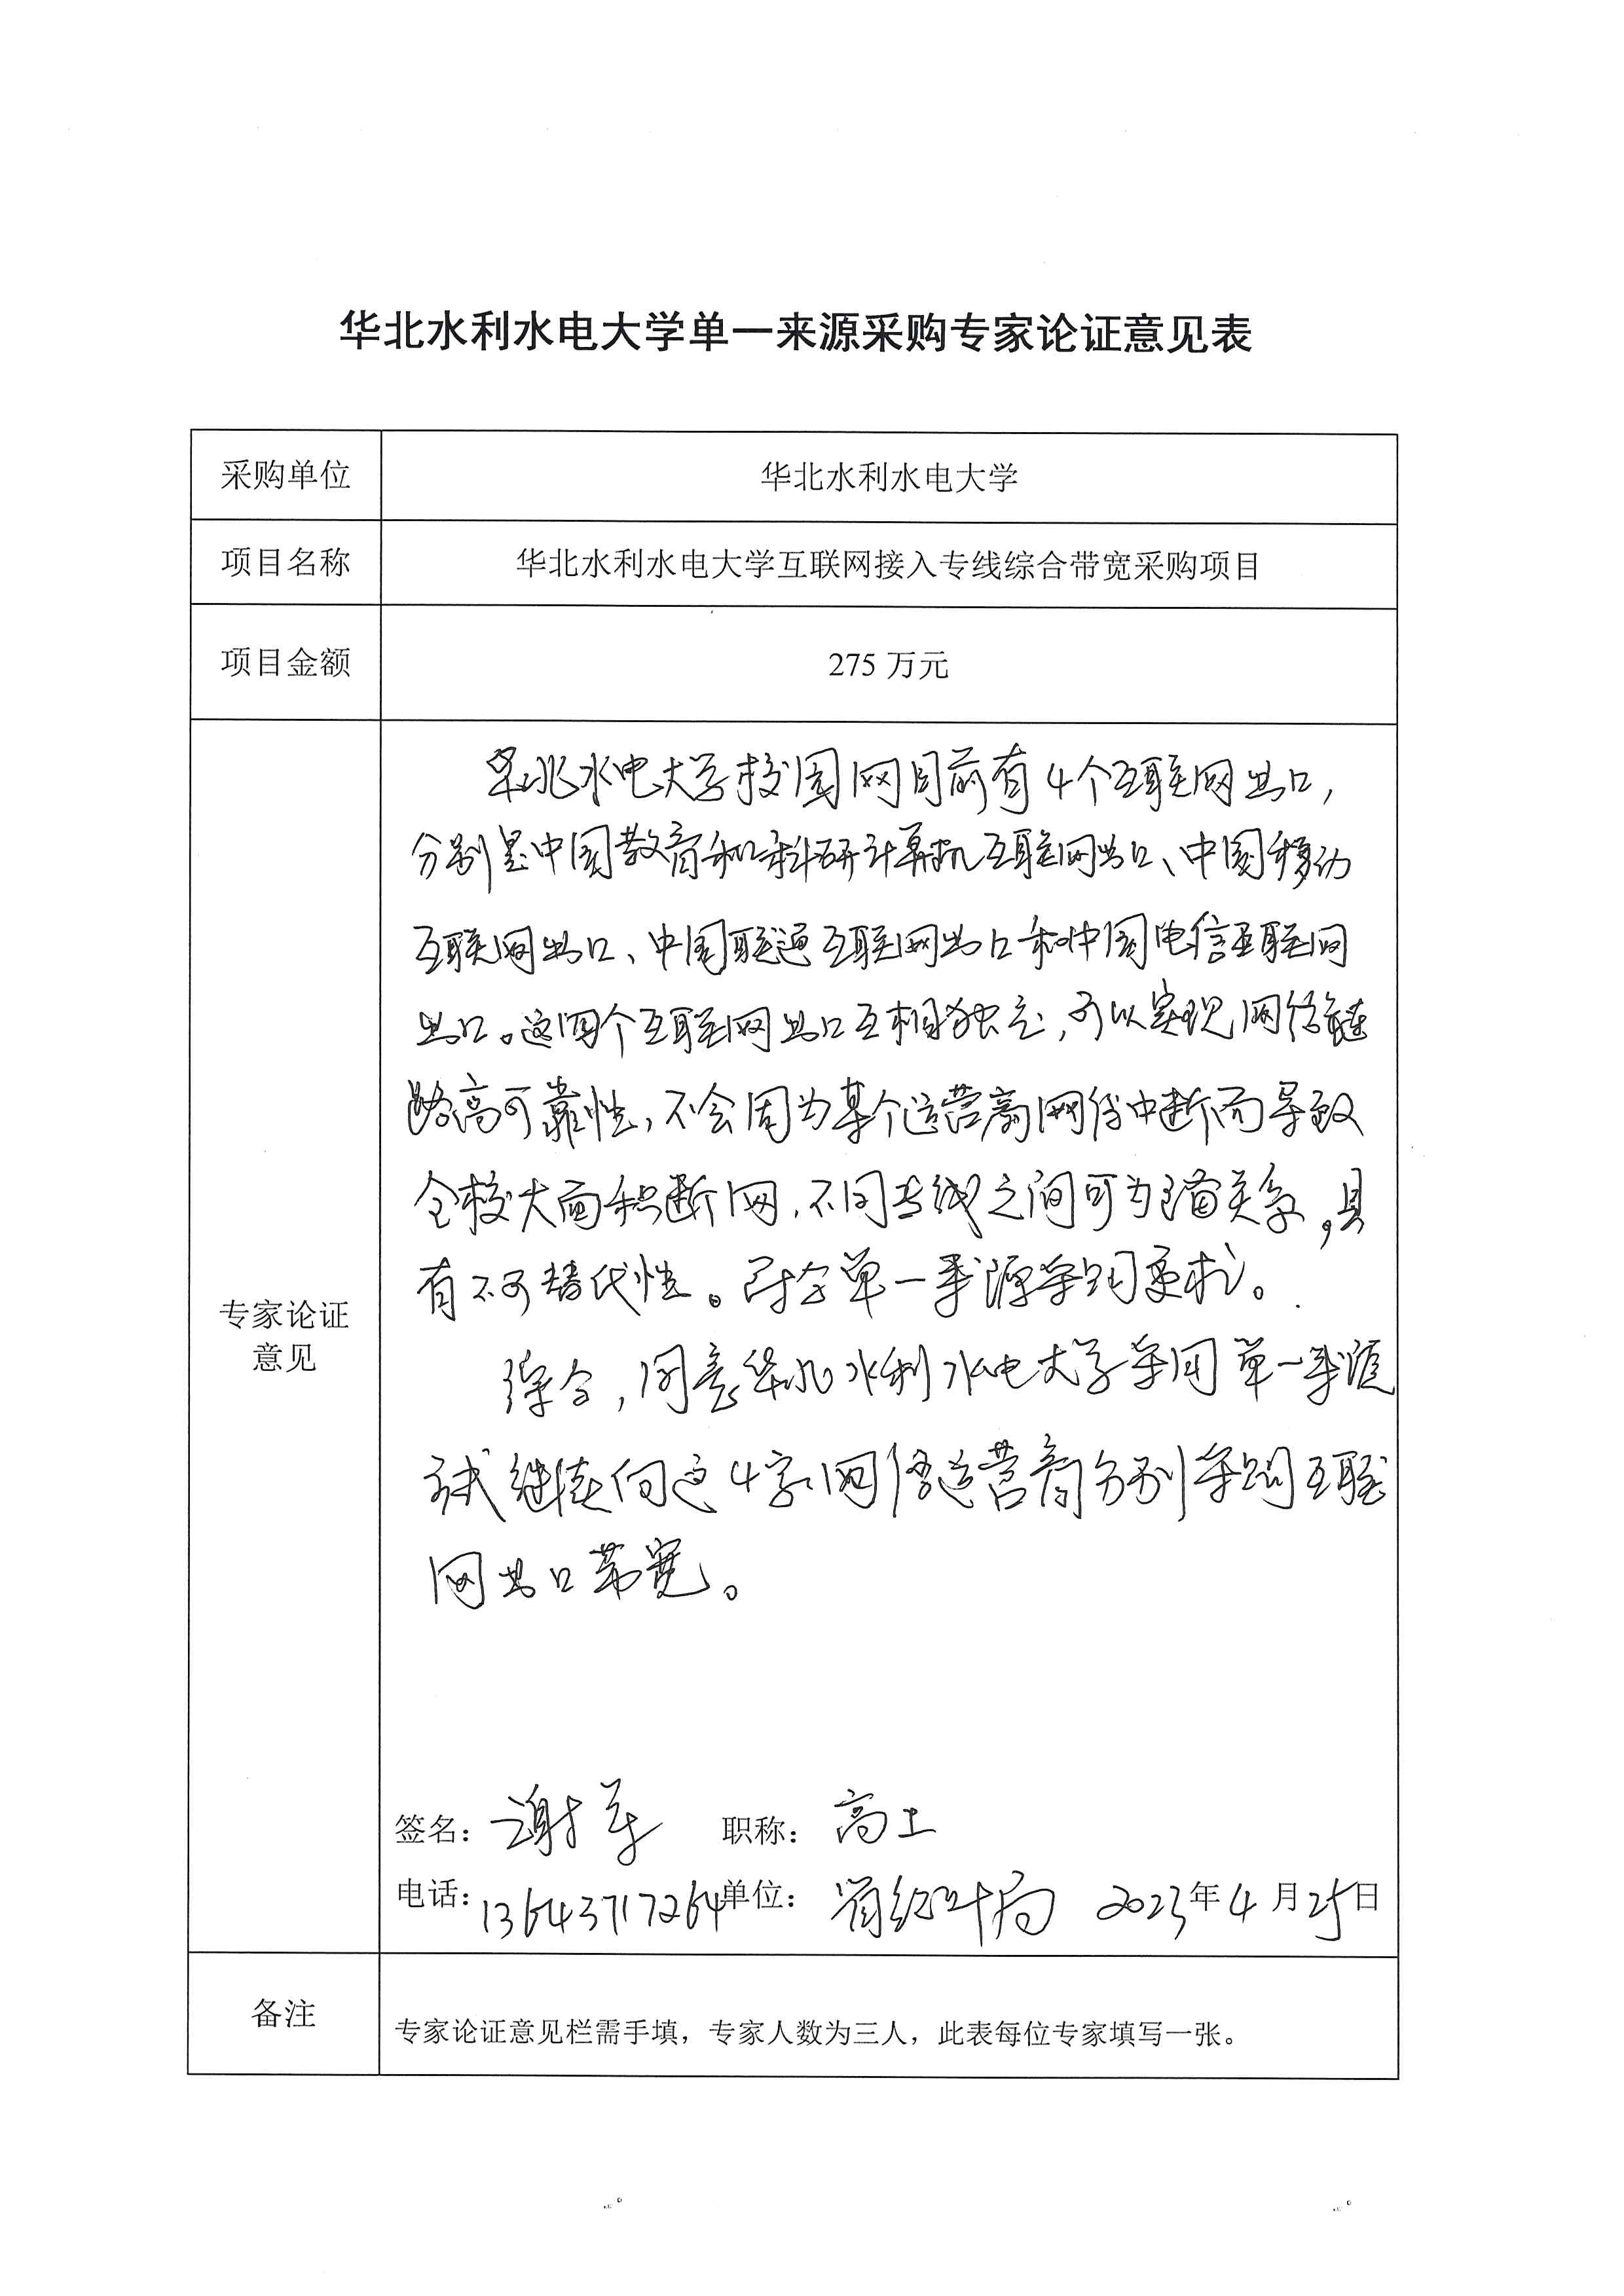 华北水利水电大学单一来源采购专家论证意见表
采购单位
华北水利水电大学
项目名称
华北水利水电大学互联网接入专线综合带宽采购项目
项目金额
275 万元
专家论证
意见
华北水电大学校园网目前有4个互联网出口,
分别是中国教育和科研计算机互联网出口、中国移动
互联网出口、中国联通互联网出口和中国电信互联网
出口。这四个互联网出口互相独立,可以实现网络链
路高可靠性,不会因为某个运营商网络中断而导致
全校大面积断网,不同专线之间可为互备关系。具
有不可替代性。符合单一来源采购要求。
综合,同意华北水利水电大学采用单一来源
式继续向这4家网络运营商分别采购互联
网出口带宽。
签名: 谢军 职称: 高工
电话: 13643717264 单位: 省 局 2023年4月25日
备注
专家论证意见栏需手填，专家人数为三人，此表每位专家填写一张。